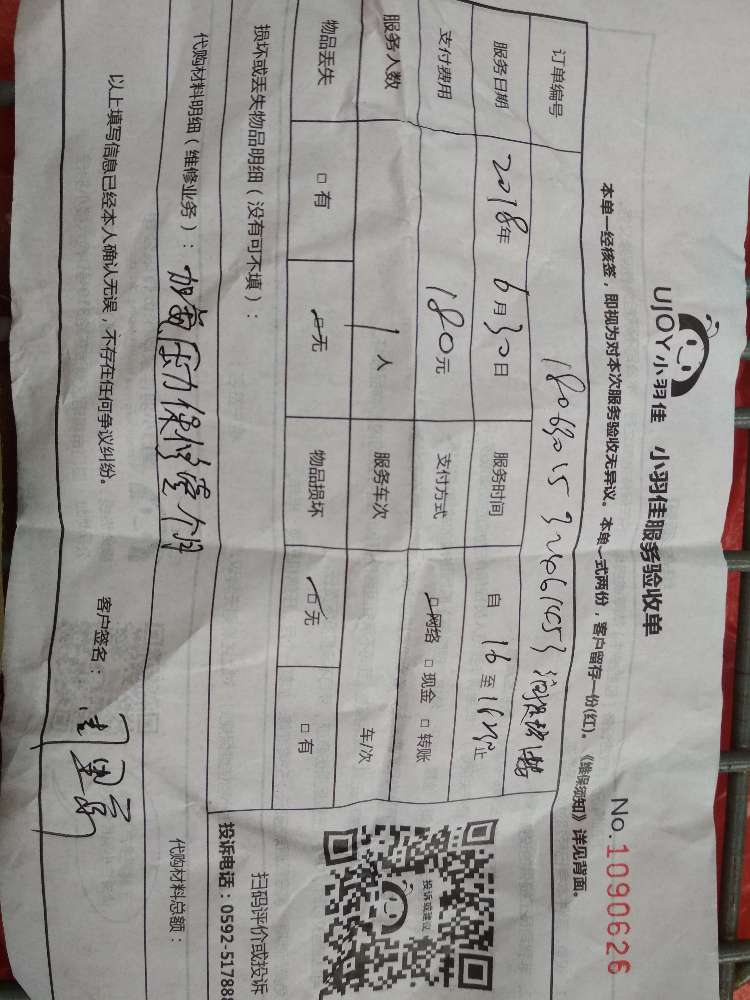 UJOY小羽佳 小羽佳服务验收单
No.1090626
本单一经核签，即视为对本次服务验收无异议。本单一式两份，客户留存一份(红)。《维保须知》详见背面。
订单编号
服务日期 2018年 6月30日 服务时间 自 16 至 1630止
支付费用 180元 支付方式 □网络 □现金 □转账
服务人数 1人 服务车次 车/次
物品丢失 □有 □无 物品损坏 □无 □有
损坏或丢失物品明细（没有可不填）：
投诉或建议
扫码评价或投诉
投诉电话：0592-517888
代购材料明细（维修业务）： 压力保修 个月
代购材料总额：
以上填写信息已经本人确认无误，不存在任何争议纠纷。 客户签名：